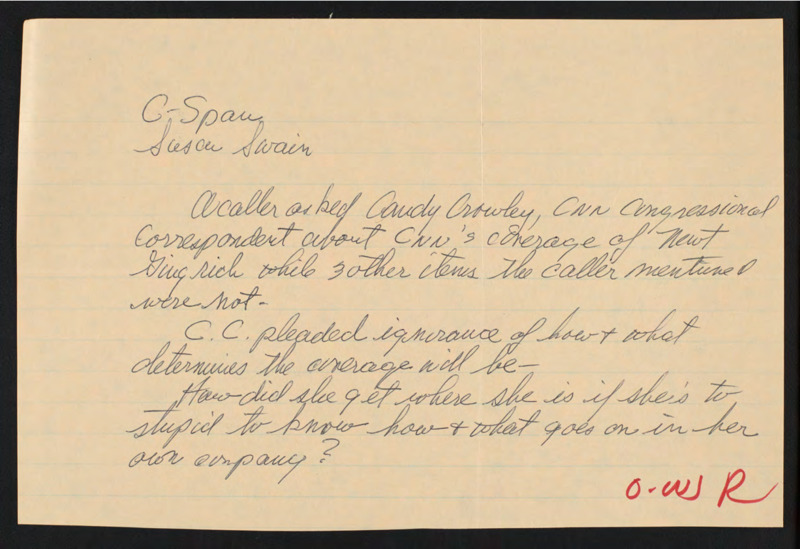 C-Span
Susan Swain
A caller asked Candy Crowley, CNN Congressional
Correspondent about CNN's coverage of Newt
Gingrich while 3 other items the caller mentioned
were not-
C.C. pleaded ignorance of how + what
determines the coverage will be-
How did she get where she is if she's to
stupid to know how + what goes on in her
own company?
O-WJ R